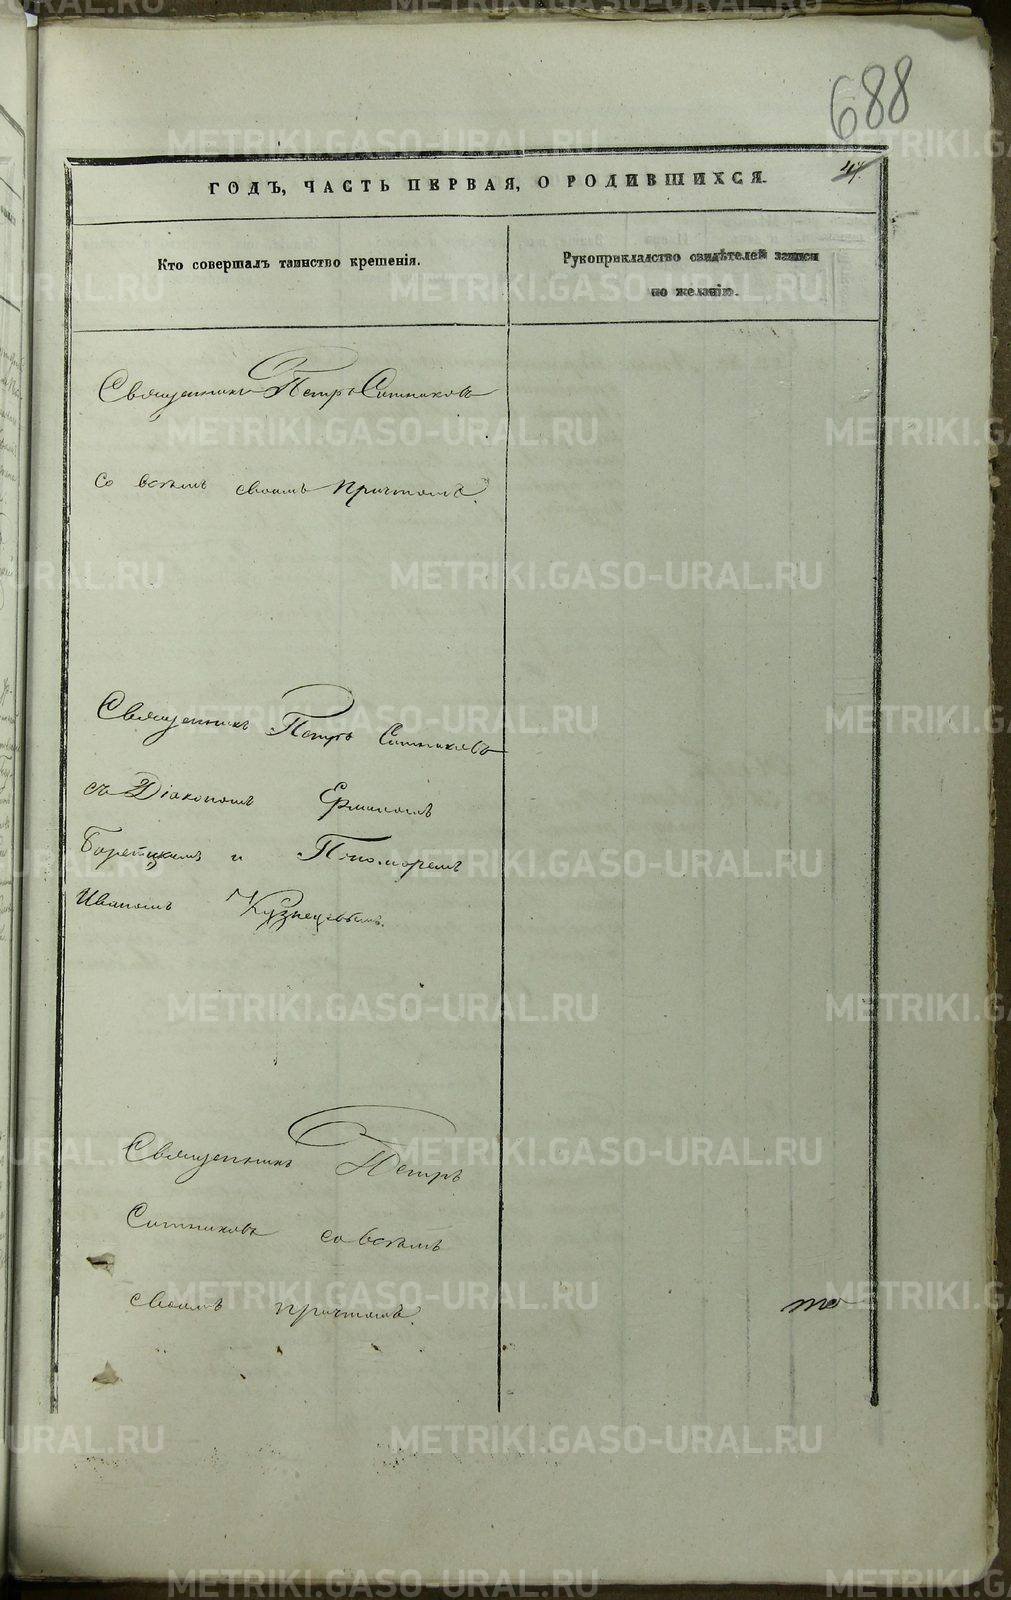 688
47.
ГОДЪ, ЧАСТЬ ПЕРВАЯ, О РОДИВШИХСЯ.
Кто совершалъ таинство крещенія.
Рукоприкладство свидѣтелей записи
по желанію.
Священникъ Петръ Ситниковъ
со всѣмъ своимъ причтомъ.
Священникъ Петръ Ситниковъ
съ Діакономъ Ермиломъ
Борецкимъ и Пономаремъ
Иваномъ Кузнецовымъ.
Священникъ Петръ
Ситниковъ со всѣмъ
своимъ причтомъ.
METRIKI.GASO-URAL.RU